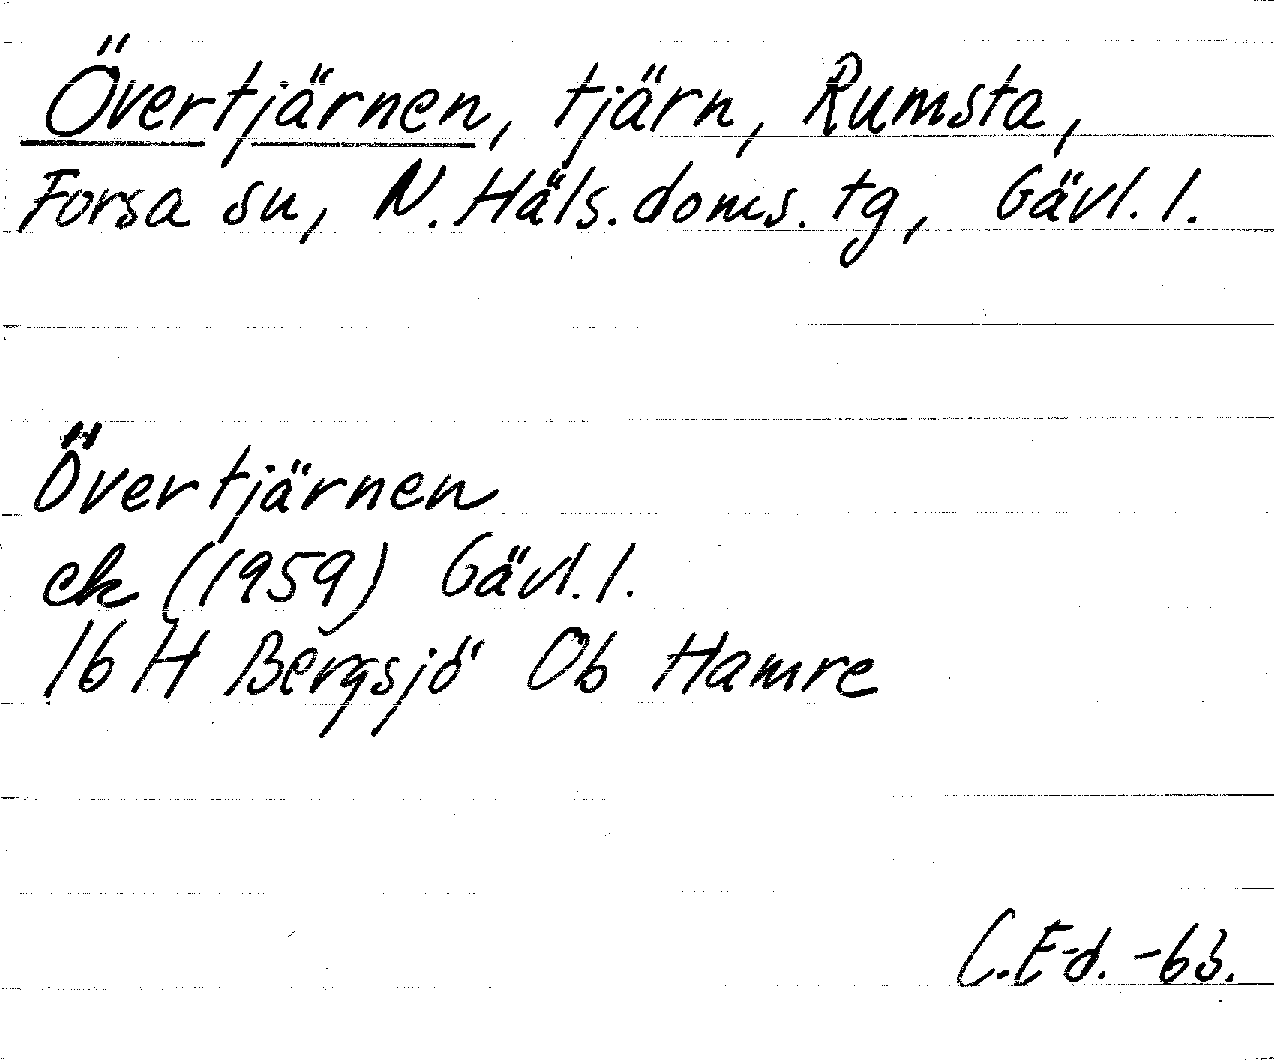 Övertjärnen, tjärn, Rumsta,
Forsa sn, N. Häls. doms. tg, Gävl. l.
Övertjärnen
ek (1959) Gävl. l.
16 H Bergsjö Ob Hamre
C. E-d. -63.